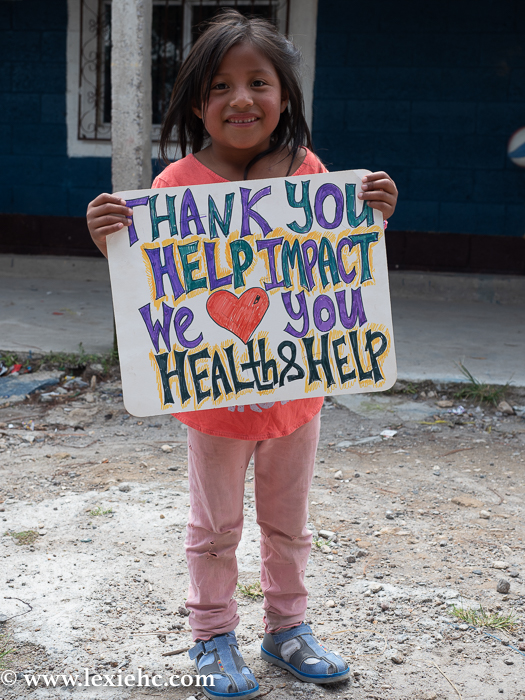 THANK YOU
HELP IMPACT
We ❤ YOU
HEALth & HELP
© www.lexiehc.com